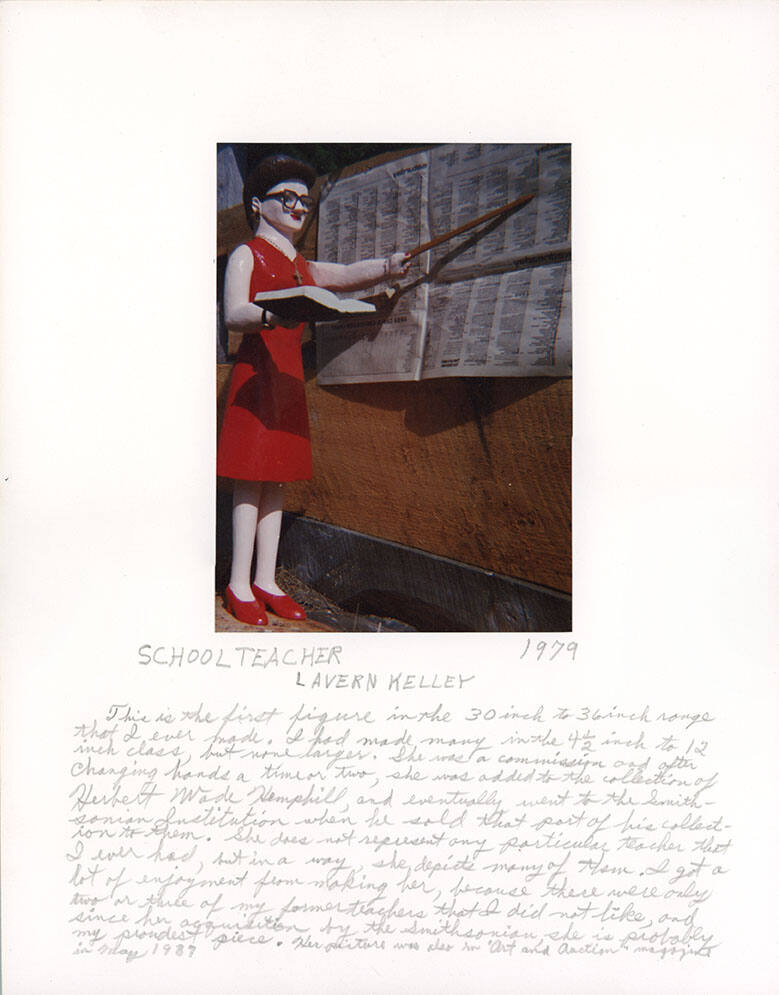 SCHOOLTEACHER 1979
LAVERN KELLEY
This is the first figure in the 30 inch to 36 inch range
that I ever made. I had made many in the 4½ inch to 12
inch class, but none larger. She was a commission and after
changing hands a time or two, she was added to the collection of
Herbert Wade Hemphill, and eventually went to the Smith-
sonian Institution when he sold that part of his collect-
ion to them. She does not represent any particular teacher that
I ever had, but in a way, she depicts many of them. I got a
lot of enjoyment from making her, because there were only
two or three of my former teachers that I did not like, and
since her acquisition by the Smithsonian she is probably
my proudest piece. Her picture was also in "Art and Auction" magazine
in May 1987